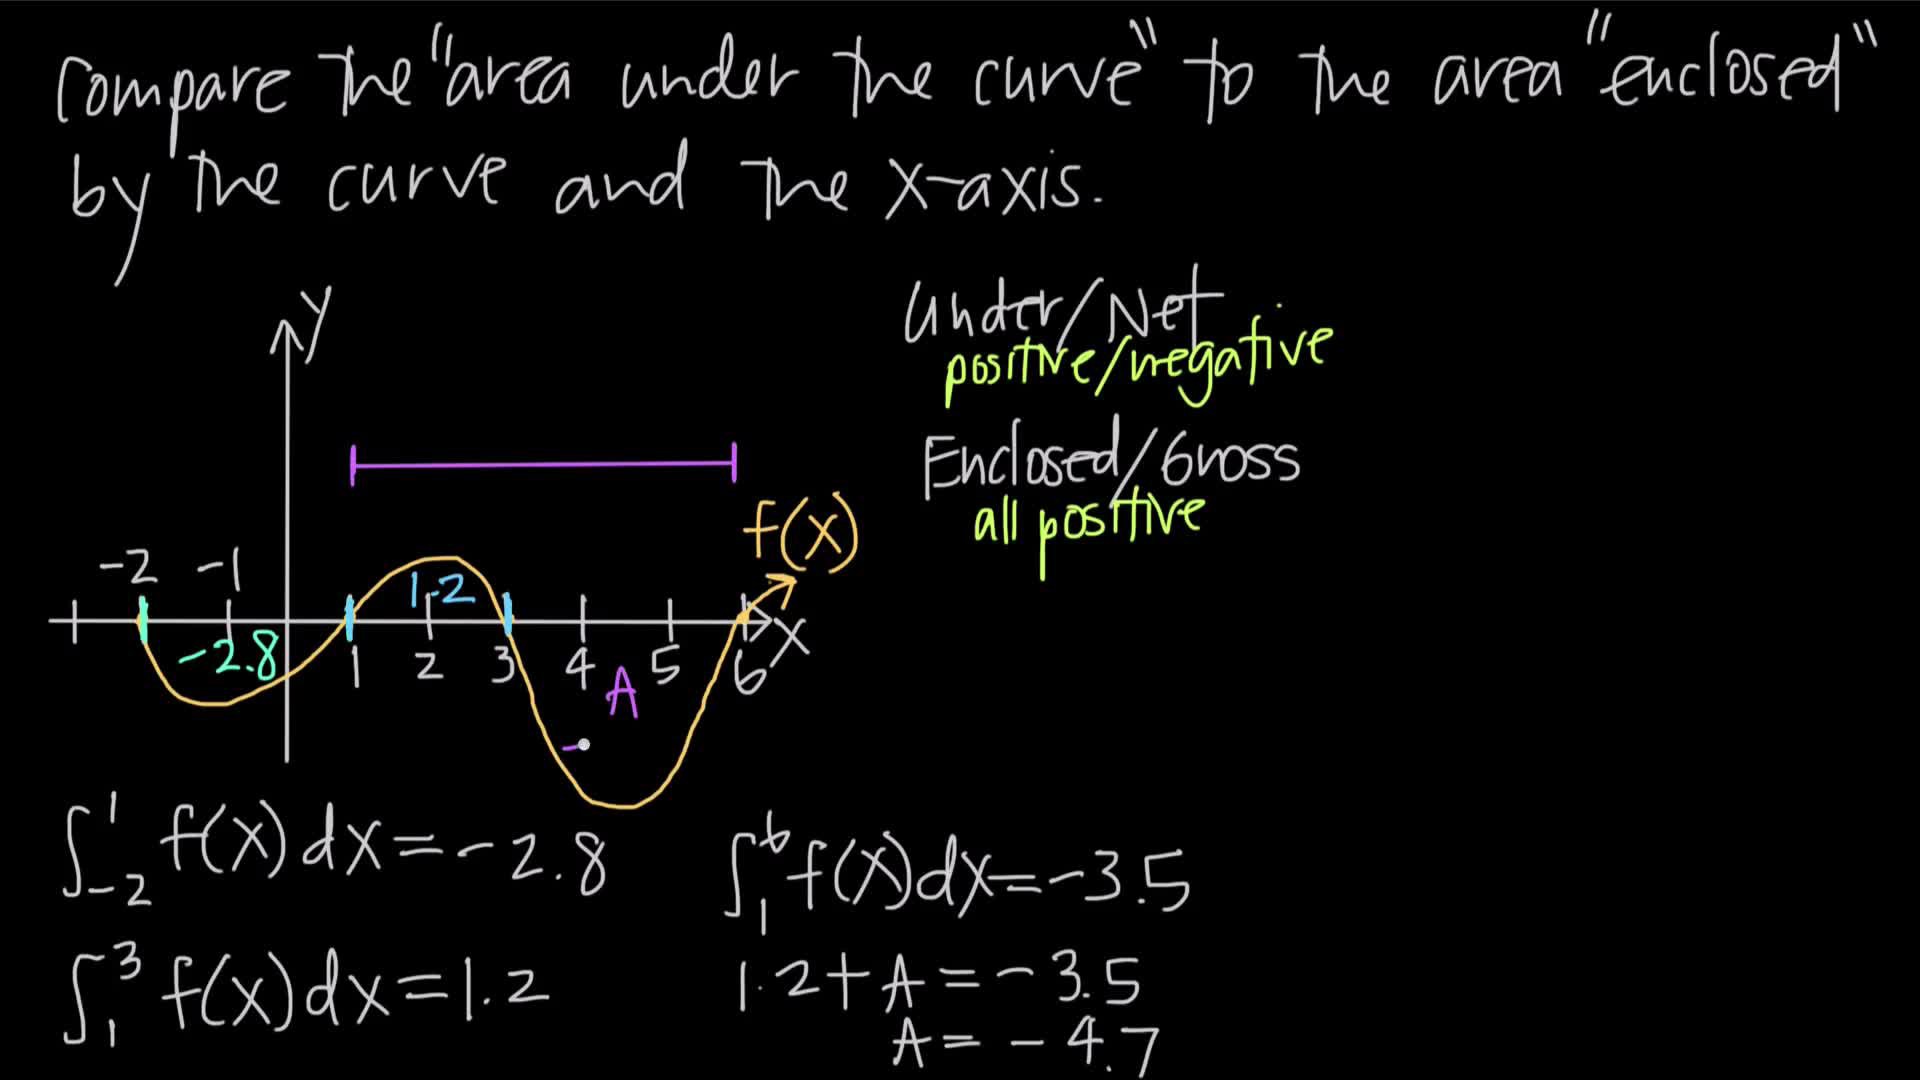 Compare the "area under the curve" to the area "enclosed"
by the curve and the x-axis.
y
Under/Net
positive/negative
Enclosed/Gross
all positive
f(x)
-2 -1
1.2
-2.8
1 2 3 4 5 6 x
A
-
∫₋₂¹ f(x)dx = -2.8
∫₁⁶ f(x)dx = -3.5
∫₁³ f(x)dx = 1.2
1.2 + A = -3.5
A = -4.7